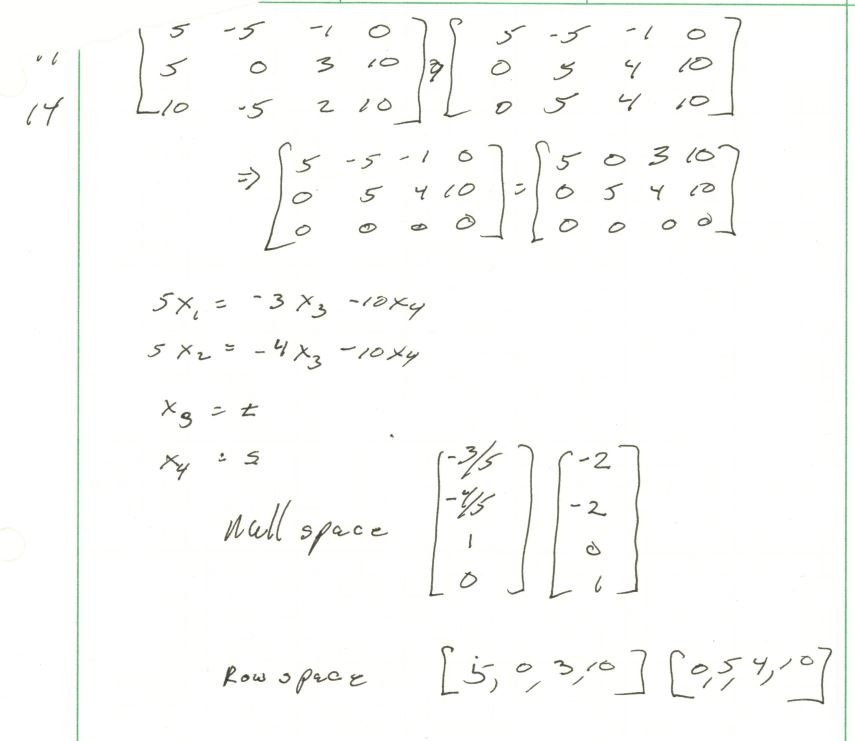 [ 5 -5 -1 0 ] [ 5 -5 -1 0 ]
[ 5 0 3 10 ] ⇒ [ 0 5 4 10 ]
14 [ 10 -5 2 10 ] [ 0 5 4 10 ]
[ 5 -5 -1 0 ] [ 5 0 3 10 ]
⇒ [ 0 5 4 10 ] = [ 0 5 4 10 ]
[ 0 0 0 0 ] [ 0 0 0 0 ]
5x₁ = -3x₃ -10x₄
5x₂ = -4x₃ -10x₄
x₃ = t
x₄ = s
Null space [ -3/5 ] [ -2 ]
[ -4/5 ] [ -2 ]
[ 1 ] [ 0 ]
[ 0 ] [ 1 ]
Row space [5, 0, 3, 10] [0, 5, 4, 10]